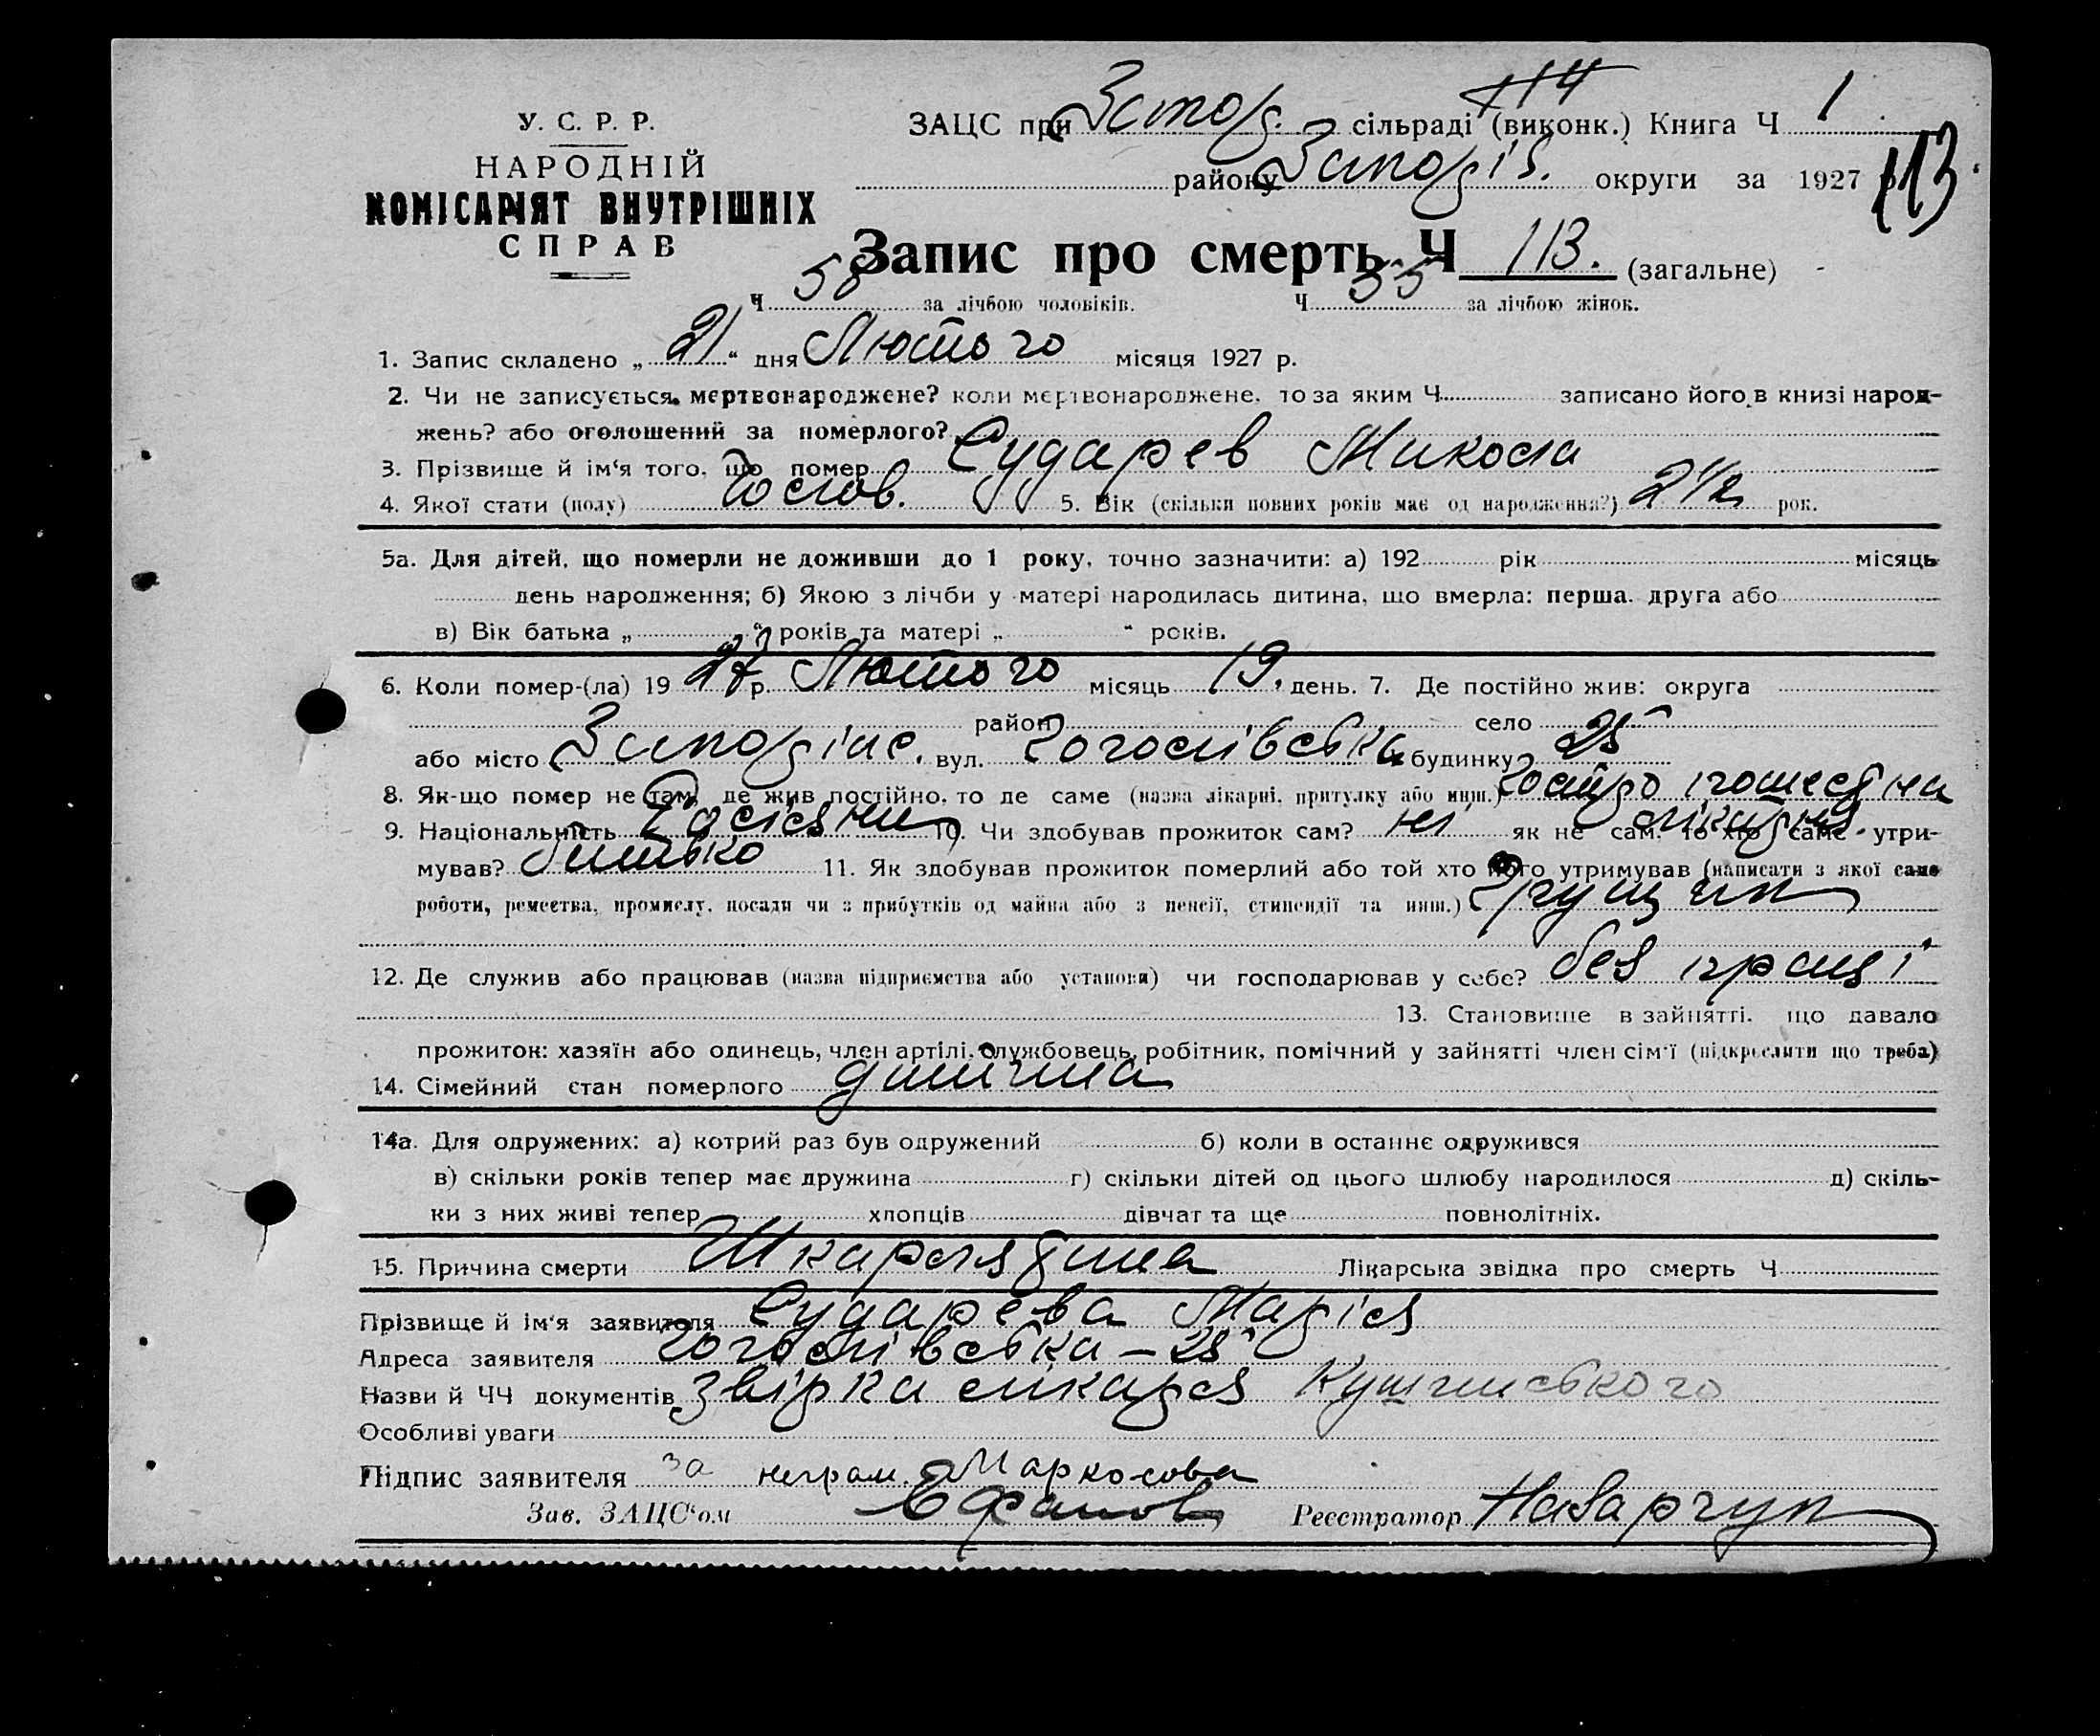 У. С. Р. Р.
НАРОДНІЙ
КОМІСАРІЯТ ВНУТРІШНІХ
СПРАВ
114
ЗАЦС при Запор. сільраді (виконк.) Книга Ч 1
району Запоріз. округи за 1927 р.
113
Запис про смерть Ч 113. (загальне)
Ч 58 за лічбою чоловіків. Ч 55 за лічбою жінок.
1. Запис складено „ 21 “ дня Лютого місяця 1927 р.
2. Чи не записується мертвонароджене? коли мертвонароджене, то за яким Ч записано його в книзі народ-
жень? або оголошений за померлого?
3. Прізвище й ім'я того, що помер Сударев Микола
4. Якої стати (полу) чолов. 5. Вік (скільки повних років має од народження?) 2 1/2 рок.
5а. Для дітей, що померли не доживши до 1 року, точно зазначити: а) 192 рік місяць
день народження; б) Якою з лічби у матері народилась дитина, що вмерла: перша, друга або
в) Вік батька „ “ років та матері „ “ років.
6. Коли помер-(ла) 19 27 р. Лютого місяць 19. день. 7. Де постійно жив: округа
район село
або місто Запоріже, вул. Гоголівська будинку 25
8. Як-що помер не там, де жив постійно, то де саме (назва лікарні, притулку або инш.)
9. Національність 10. Чи здобував прожиток сам? ні як не сам, то хто саме утри-
мував? батько 11. Як здобував прожиток померлий або той хто його утримував (написати з якої саме
роботи, ремества, промислу, посади чи з прибутків од майна або з пенсії, стипендії та инш.) грущик
12. Де служив або працював (назва підприємства або установи) чи господарював у себе? без праці
13. Становище в зайнятті, що давало
прожиток: хазяїн або одинець, член артілі, службовець, робітник, помічний у зайнятті член сім'ї (підкреслити що треба)
14. Сімейний стан померлого дитина
14а. Для одружених: а) котрий раз був одружений б) коли в останнє одружився
в) скільки років тепер має дружина г) скільки дітей од цього шлюбу народилося д) скіль-
ки з них живі тепер хлопців дівчат та ще повнолітніх.
15. Причина смерти Шкарлятина Лікарська звідка про смерть Ч
Прізвище й ім'я заявителя Сударева Марія
Адреса заявителя Гоголівська – 25
Назви й ЧЧ документів лікаря
Особливі уваги
Підпис заявителя за неграм. Маркосова
Зав. ЗАЦС'ом Реєстратор Назарчук